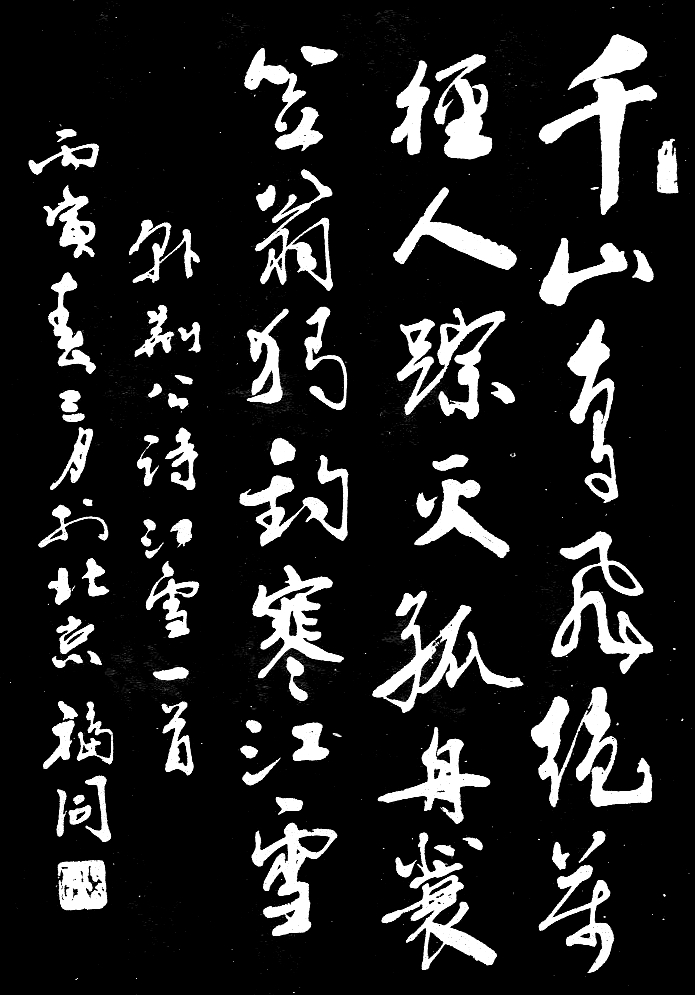 千山鸟飞绝萬
径人踪灭孤舟蓑
笠翁独钓寒江雪
荆公诗江雪一首
丙寅春三月於北京 福同